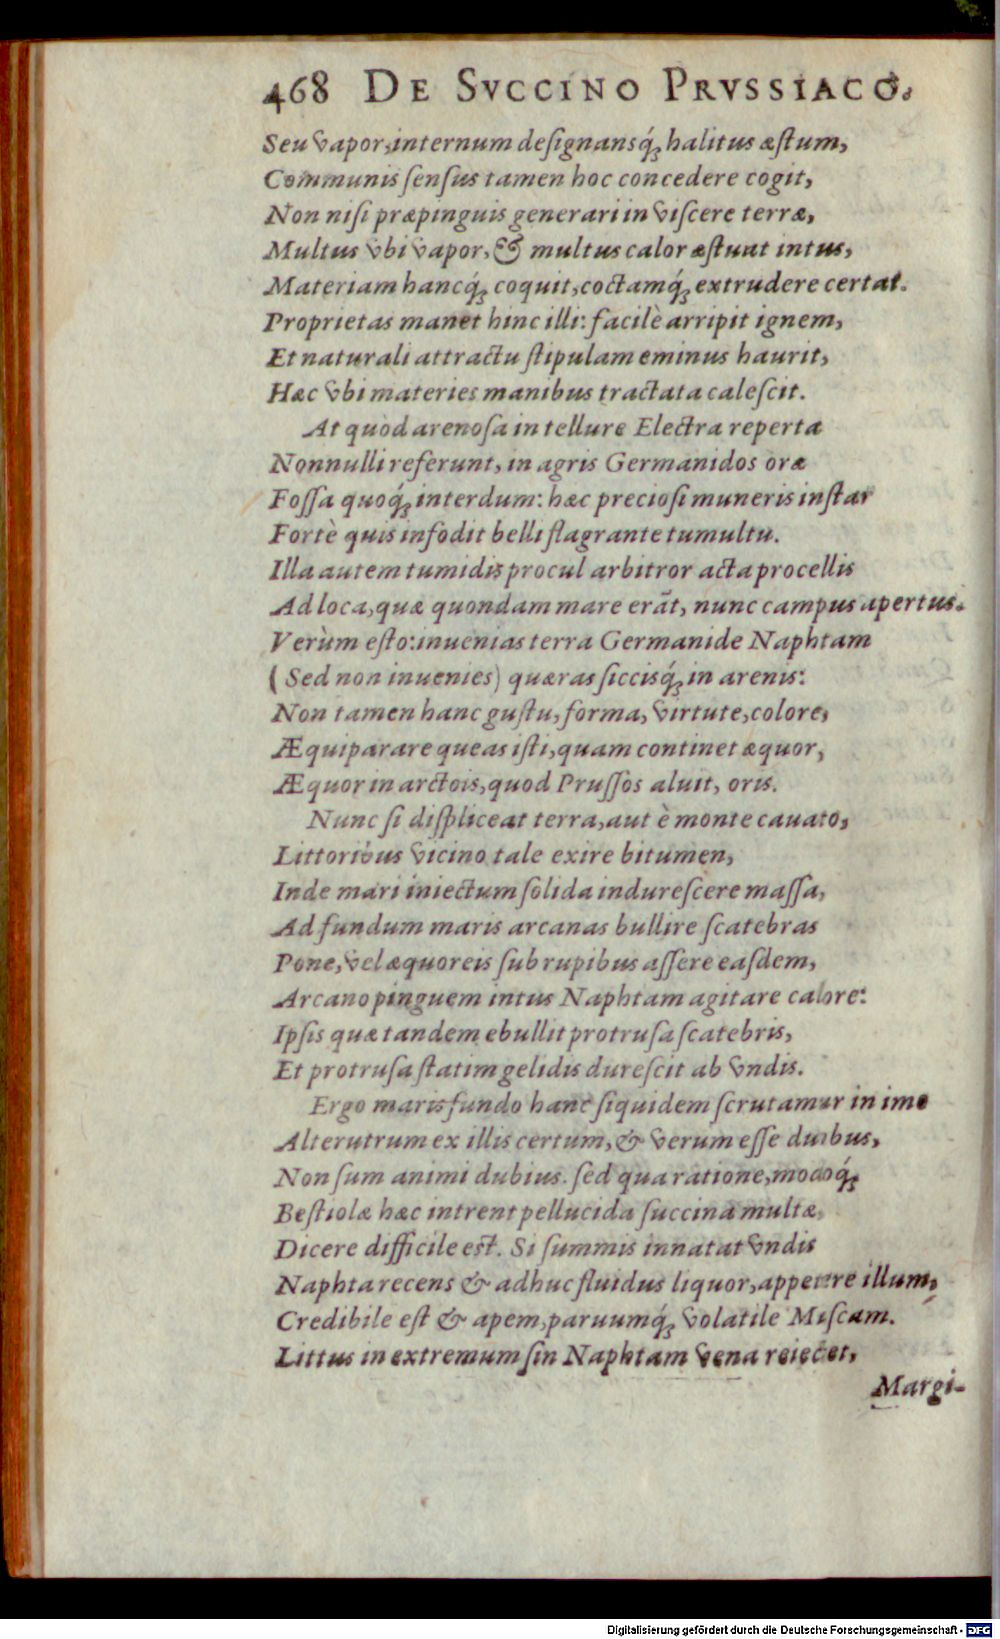 468 DE SVCCINO PRVSSIACO.
Seu vapor, internum deſignansq́; halitus æſtum,
Communis ſenſus tamen hoc concedere cogit,
Non niſi præpinguis generari in viſcere terræ,
Multus vbi vapor, & multus calor æſtuat intus,
Materiam hancq́; coquit, coctamq́; extrudere certat.
Proprietas manet hinc illi: facilè arripit ignem,
Et naturali attractu ſtipulam eminus haurit,
Hæc vbi materies manibus tractata caleſcit.
At quòd arenoſa in tellure Electra reperta
Nonnulli referunt, in agris Germanidos oræ
Foſſa quoq́; interdum: hæc precioſi muneris inſtar
Fortè quis infodit belli flagrante tumultu.
Illa autem tumidis procul arbitror acta procellis
Ad loca, quæ quondam mare erãt, nunc campus apertus.
Verùm eſto: inuenias terra Germanide Naphtam
(Sed non inuenies) quæras ſiccisq́; in arenis:
Non tamen hanc guſtu, forma, virtute, colore,
Æquiparare queas iſti, quam continet æquor,
Æquor in arctois, quod Pruſſos aluit, oris.
Nunc ſi diſpliceat terra, aut è monte cauato,
Littoribus vicino tale exire bitumen,
Inde mari iniectum ſolida indureſcere maſſa,
Ad fundum maris arcanas bullire ſcatebras
Pone, vel æquoreis ſub rupibus aſſere eaſdem,
Arcano pinguem intus Naphtam agitare calore:
Ipſis quæ tandem ebullit protruſa ſcatebris,
Et protruſa ſtatim gelidis dureſcit ab vndis.
Ergo maris fundo hanc ſiquidem ſcrutamur in imo
Alterutrum ex illis certum, & verum eſſe duobus,
Non ſum animi dubius. ſed qua ratione, modoq́;
Beſtiolæ hæc intrent pellucida ſuccina multæ,
Dicere difficile eſt. Si ſummis innatat vndis
Naphta recens & adhuc fluidus liquor, appetere illum,
Credibile eſt & apem, paruumq́; volatile Miſcam.
Littus in extremum ſin Naphtam vena reiecet,
Margi-
Digitalisierung gefördert durch die Deutsche Forschungsgemeinschaft - DFG